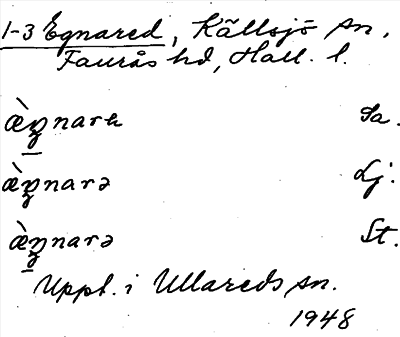 1-3 Egnared, Källsjö sn.
Faurås hd, Hall. l.
æ̀ŋnarh Sa.
æ̀ŋnarə Lj.
æ̀ŋnarə St.
Uppt. i Ullareds sn.
1948